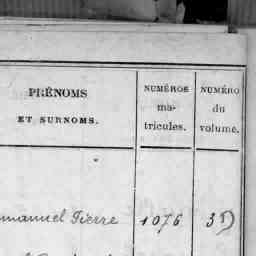 PRÉNOMS
ET SURNOMS.
NUMÉROS
ma-
tricules.
NUMÉRO
du
volume.
manuel Pierre 1076